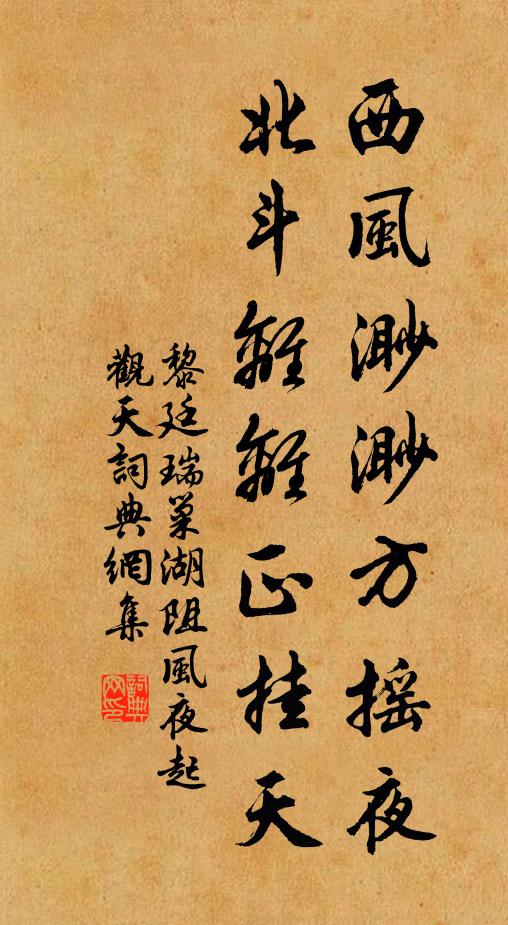 西風渺渺方摇夜
北斗離離正挂天
黎廷瑞巢湖阻風夜起
觀天詞典網集
詞典網印